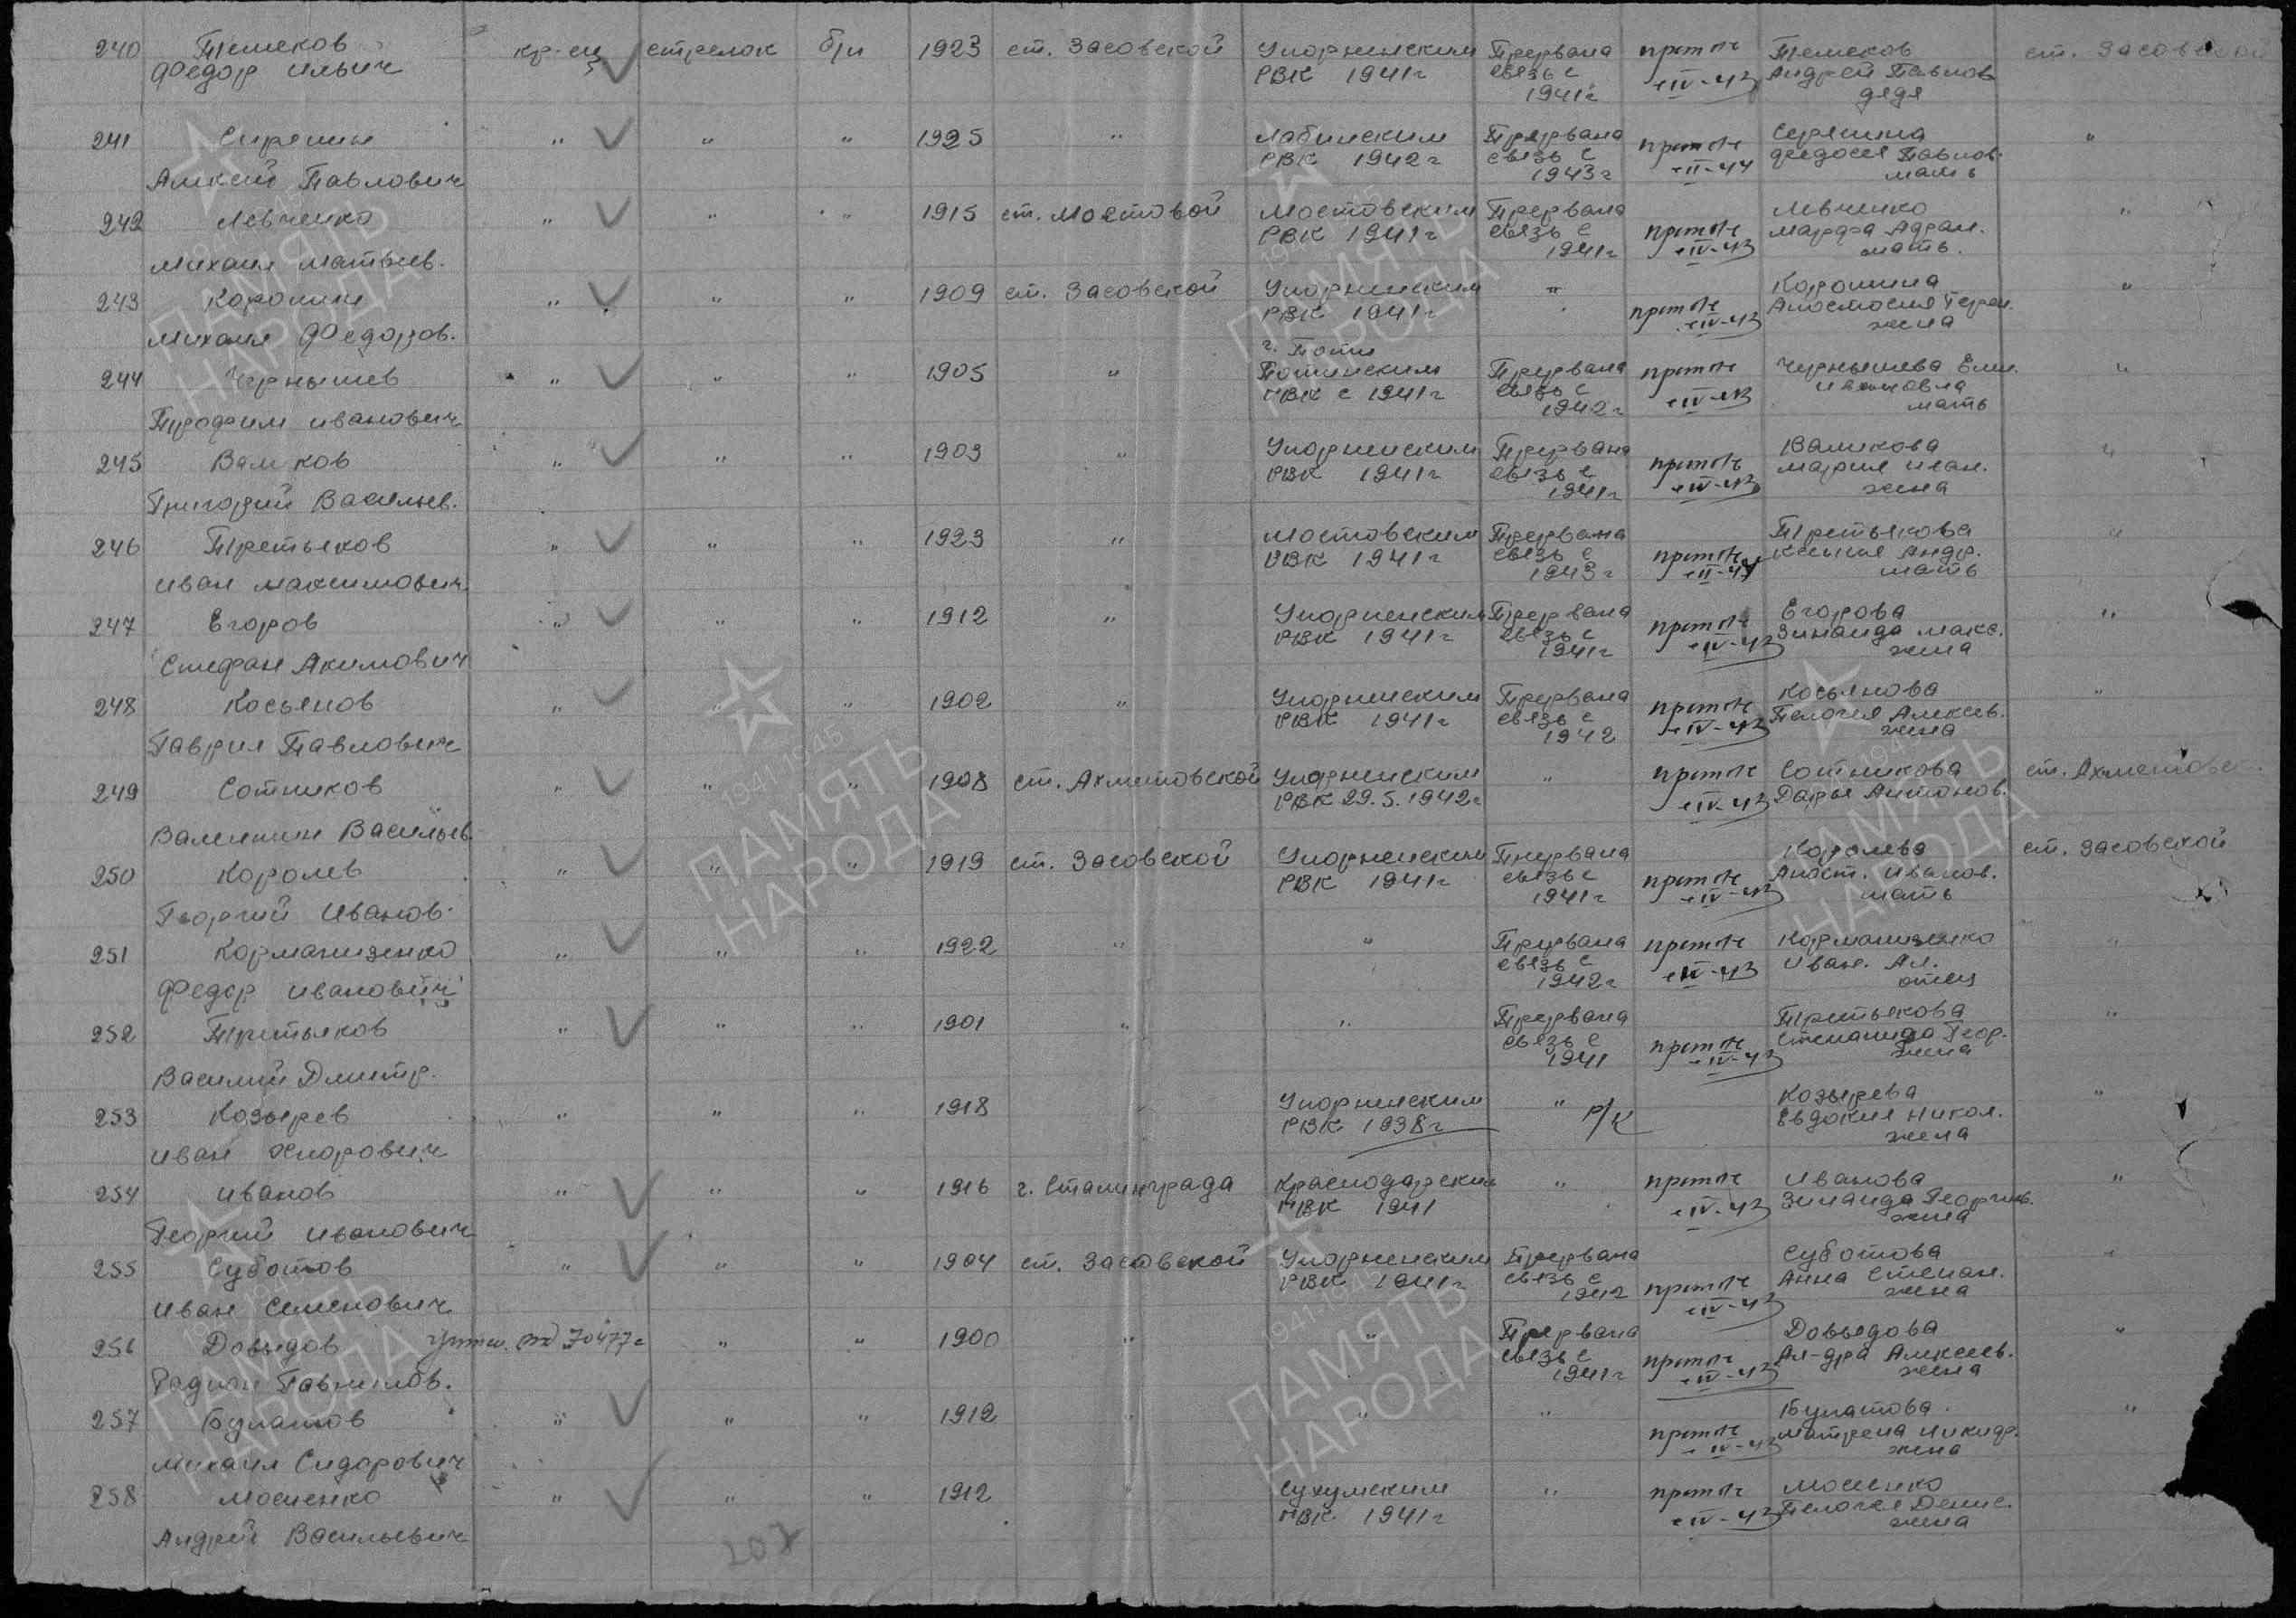 240 Темеков кр-ец стрелок б/п 1923 ст. Засовской Упорненским Прервана проп. б/в Темеков ст. Засовской
Федор Ильич РВК 1941г связь с IV-43 Андрей Павлов
1941г дядя
241 Сиренин " " " 1925 " Лабинским Прервана "
Алексей Павлович РВК 1942г связь с II-44 Федосея Павлов.
1943г мать
242 Левченко " " " 1915 ст. Мостовой Мостовским Прервана Левченко "
Михаил Матвеев. РВК 1941г связь с IV-43 Марфа Адрам.
1941г мать.
243 " " " 1909 ст. Засовской Упорненским " "
Михаил Федоров. РВК 1941г IV-43
жена
г. Поти
244 Чернышев " " " 1905 " Потинским Прервана Чернышева "
Трофим Иванович РВК с 1941г связь с IV-43 Ивановна
1942г мать
245 Валиков " " " 1903 " Упорненским Прервана Валикова "
Григорий Васильев. РВК 1941г связь с IV-43 Мария Иван.
1941г жена
246 Третьяков " " " 1923 " Мостовским Прервана Третьякова "
Иван Максимович РВК 1941г связь с Ксения Андр.
1943г мать
247 Егоров " " " 1912 " Упорненским Прервана Егорова "
Стефан Акимович РВК 1941г связь с IV-43 Зинаида Макс.
1941г жена
248 Косьянов " " " 1902 " Упорненским Прервана Косьянова "
Гаврил Павлович РВК 1941г связь с IV-43 Пелагея Алексеев.
1942 жена
249 Сотников " " " 1908 ст. Ахметовской Упорненским " Сотникова ст. Ахметовск.
Валентин Васильев. РВК 29.5.1942г IV-43 Дарья Антонов.
250 Королев " " " 1919 ст. Засовской Упорненским Прервана Королева ст. Засовской
Георгий Иванов. РВК 1941г связь с IV-43 Анаст. Иванов.
1941г мать
251 " " " 1922 " " Прервана "
Федор Иванович связь с IV-43 Иван. Ал.
1942г отец
252 Третьяков " " " 1901 " " Прервана Третьякова "
Василий Дмитр. связь с IV-43 Степанида Геор.
1941 жена
253 Козырев " " " 1918 Упорненским " р/к Козырева "
Иван РВК 1938г Евдокия Никол.
жена
254 Иванов " " " 1916 г. Сталинграда Краснодарским " Иванова "
Георгий Иванович 1941 IV-43 Зинаида Георгиев.
жена
255 Суботов " " " 1904 ст. Засовской Упорненским Прервана Суботова "
Иван Семенович РВК 1941г связь с IV-43 Анна Степан.
1942 жена
256 Довыдов 70477г " " 1900 " " Прервана Довыдова "
Радион Гаврилов. связь с IV-43 Ал-дра Алексеев.
1941г жена
257 Булатов " " " 1912 " " " Булатова "
Михаил Сидорович IV-43 Матрена Никифр.
жена
258 Мосиенко " " " 1912 " Сухумским " Мосиенко
Андрей Васильевич 1941г IV-43 Пелагея Денис.
жена
207
1941-1945
ПАМЯТЬ
НАРОДА